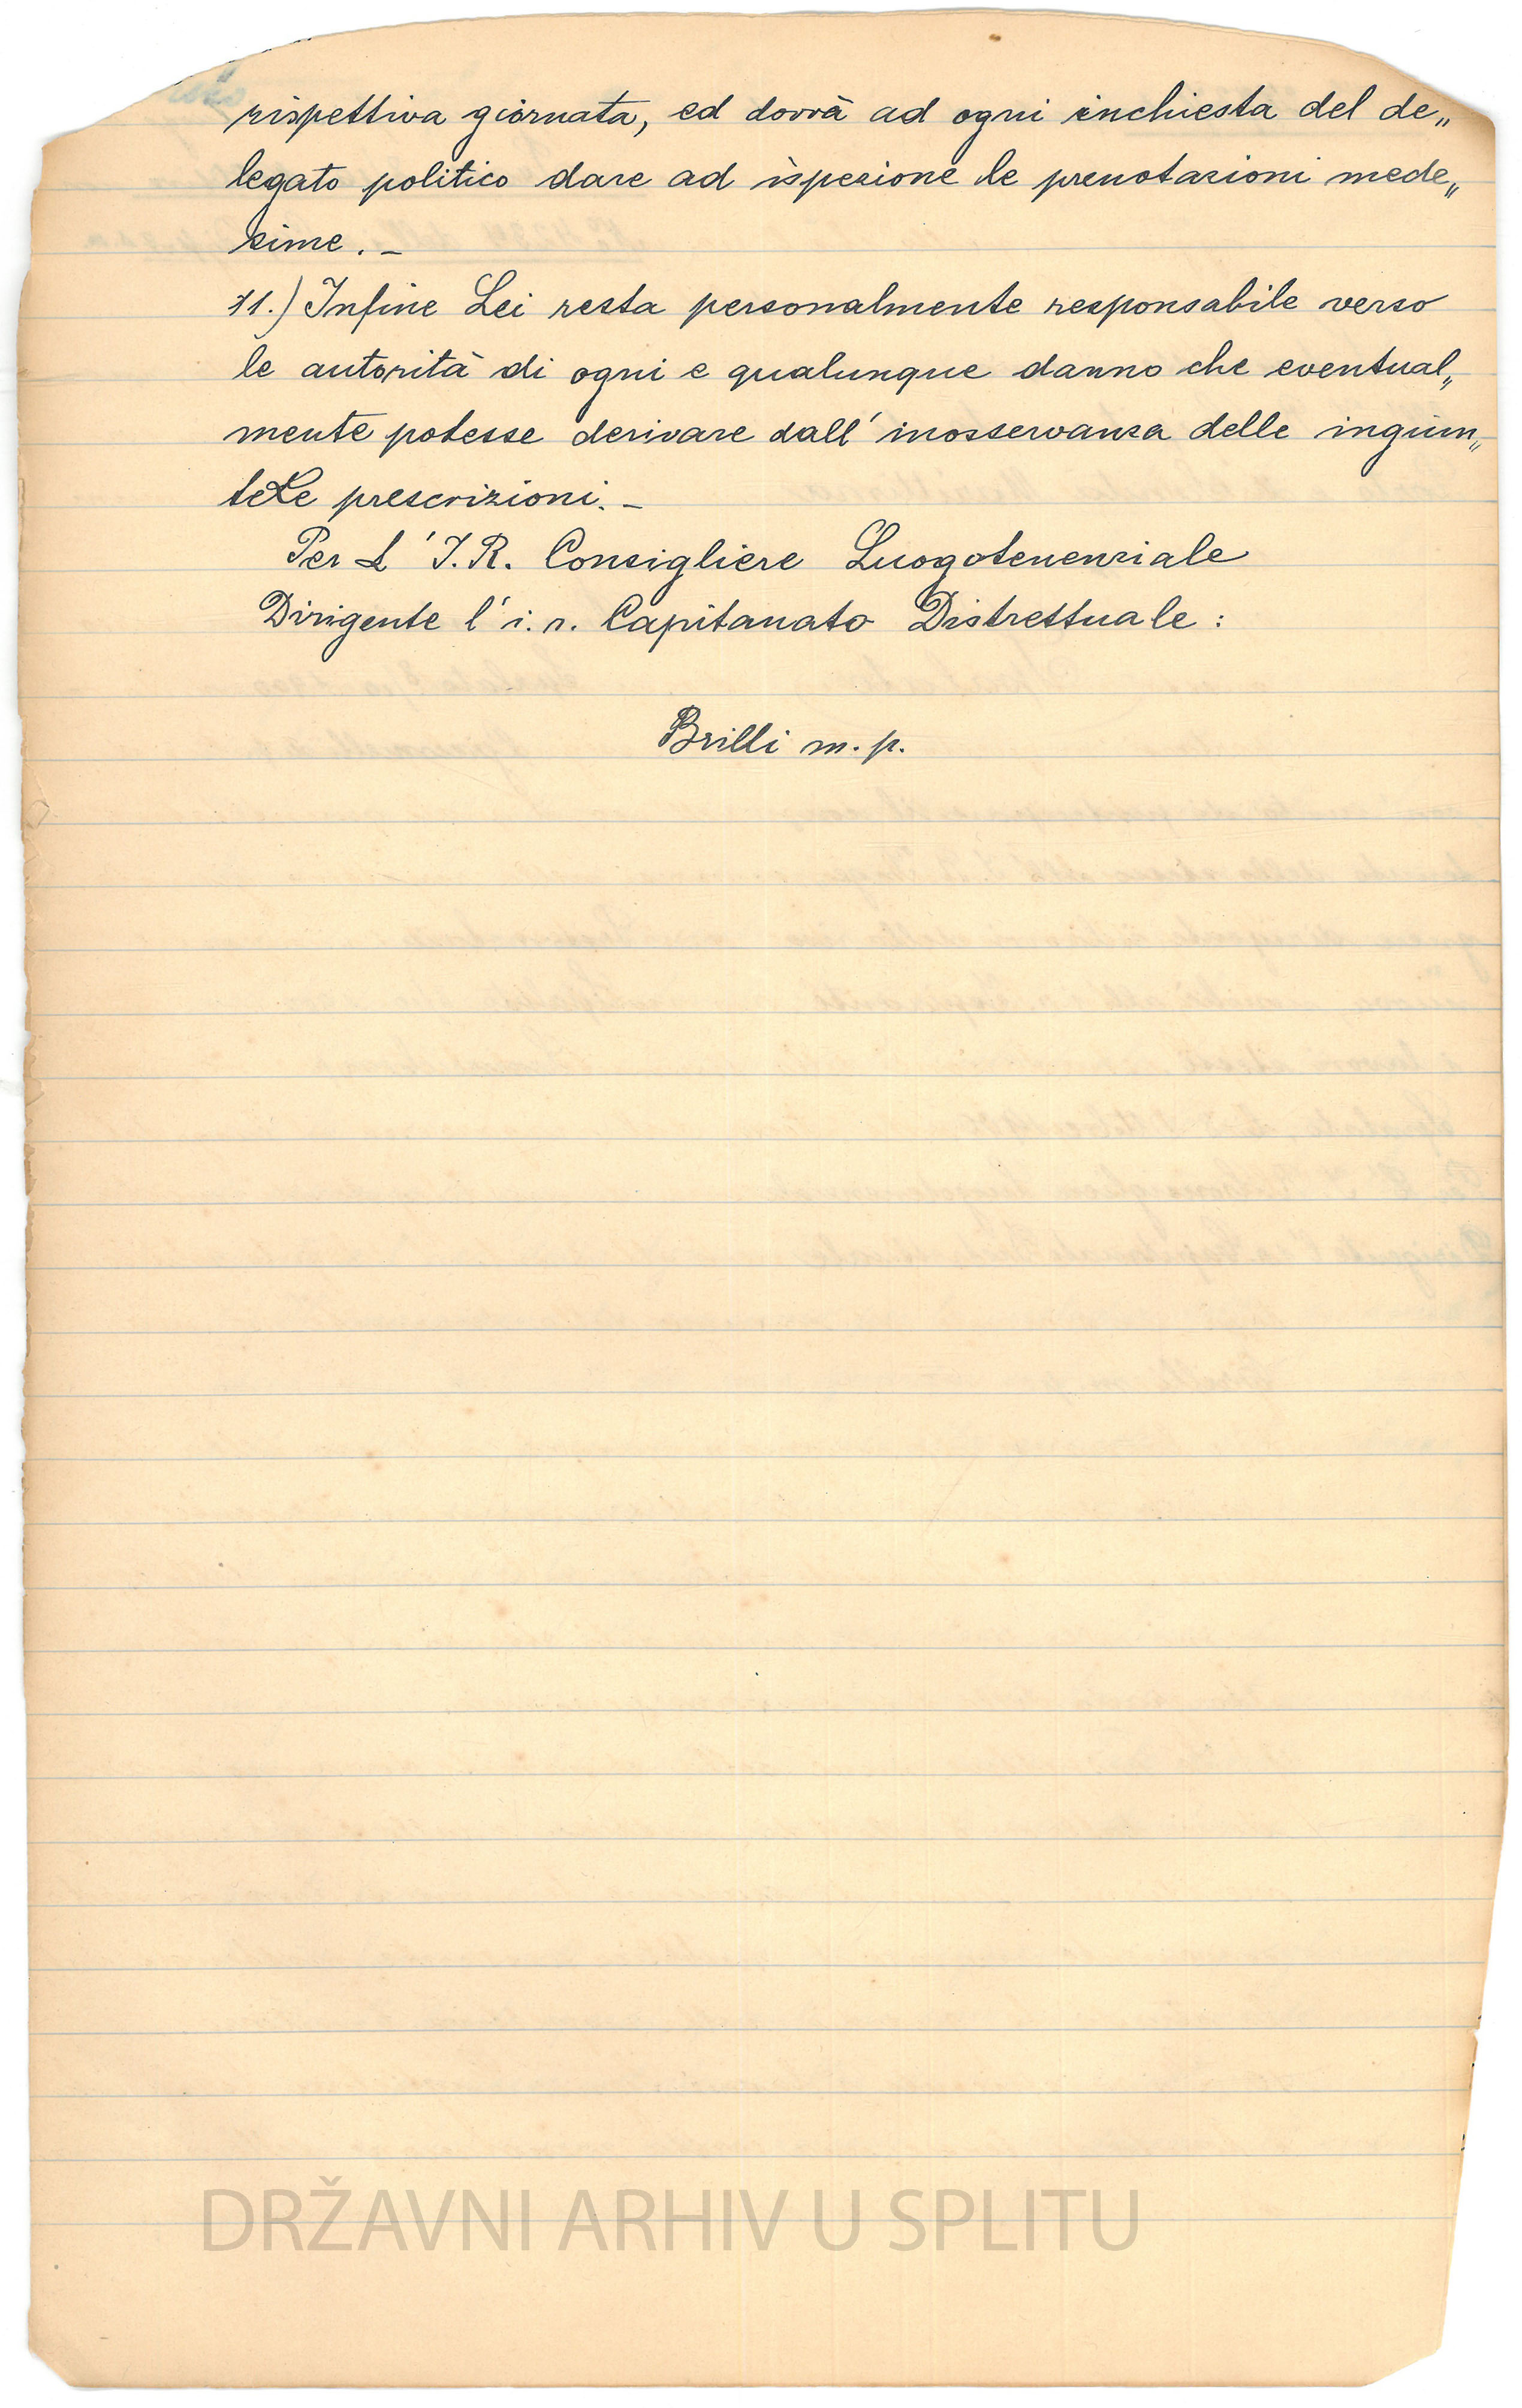 rispettiva giornata, ed dovrà ad ogni inchiesta del de„
legato politico dare ad ispezione le prenotazioni mede„
sime. –
11.) Infine Lei resta personalmente responsabile verso
le autorità di ogni e qualunque danno che eventual„
mente potesse derivare dall' inosservanza delle ingiun„
tele prescrizioni. –
Per L' I. R. Consigliere Luogotenenziale
Dirigente l' i. r. Capitanato Distrettuale :
Brilli m. p.
DRŽAVNI ARHIV U SPLITU